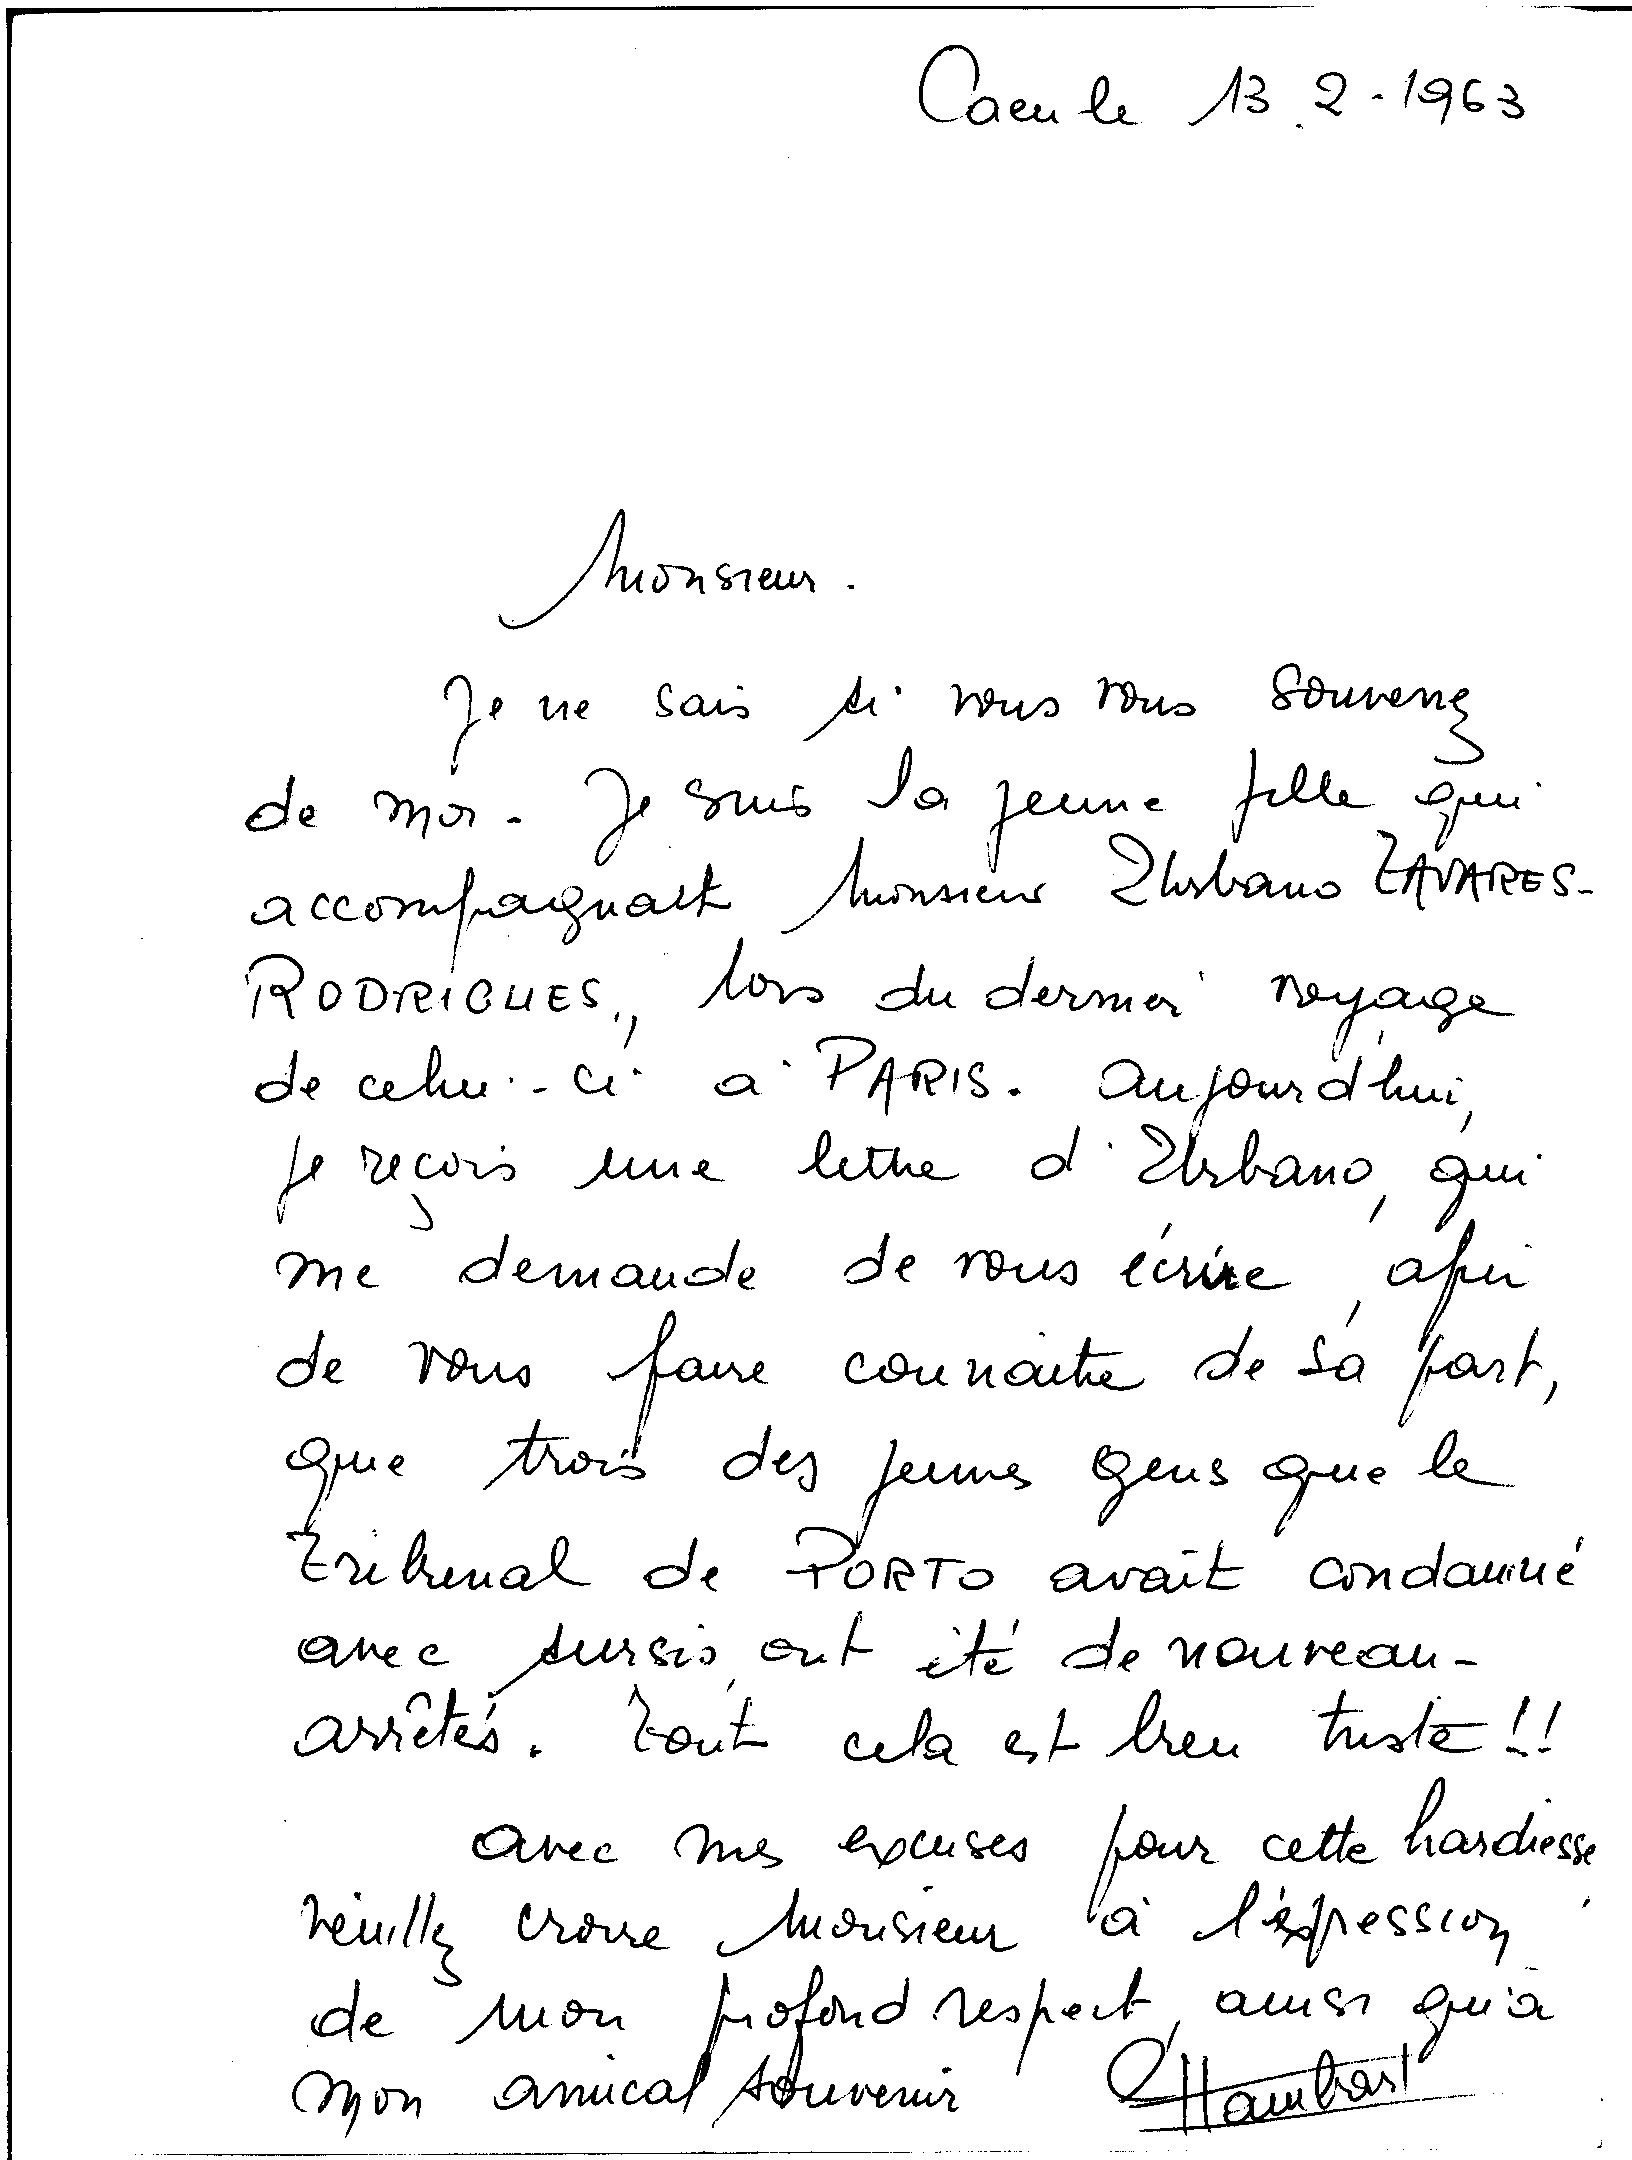 Caen le 13.2-1963
Monsieur.
Je ne sais si vous vous souvenez
de moi. Je suis la jeune fille qui
accompagnait Monsieur Urbano TAVARES-
RODRIGUES, lors du dernier voyage
de celui-ci à PARIS. Aujourd'hui,
je reçois une lettre d'Urbano, qui
me demande de vous écrire, afin
de vous faire connaître de sa part,
que trois des jeunes gens que le
Tribunal de PORTO avait condamné
avec sursis, ont été de nouveau-
arrêtés. Tout cela est bien triste!!
Avec mes excuses pour cette hardiesse
veuillez croire Monsieur à l'expression
de mon profond respect, ainsi qu'à
mon amical souvenir